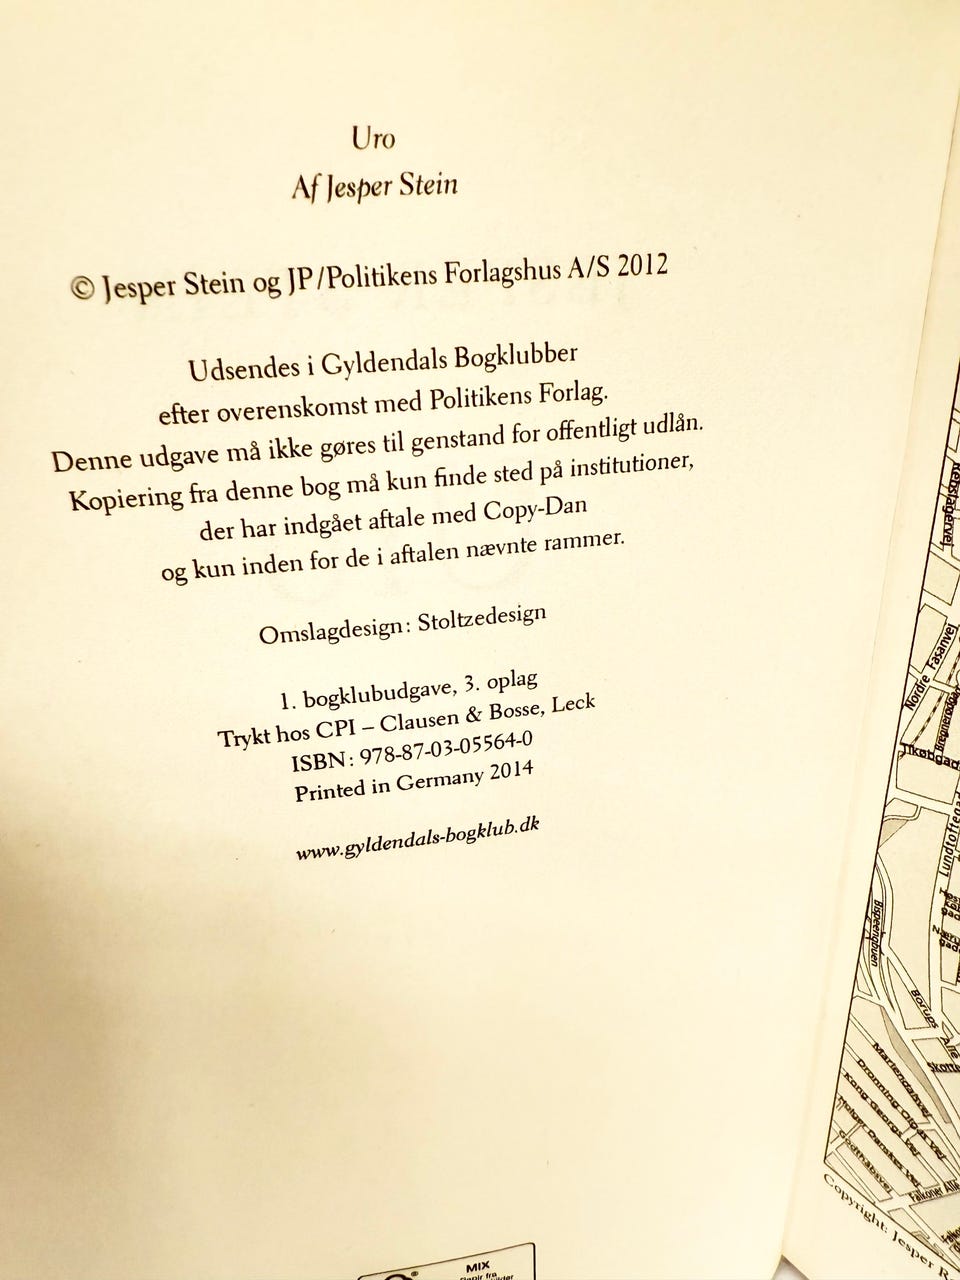 Uro
Af Jesper Stein
© Jesper Stein og JP/Politikens Forlagshus A/S 2012
Udsendes i Gyldendals Bogklubber
efter overenskomst med Politikens Forlag.
Denne udgave må ikke gøres til genstand for offentligt udlån.
Kopiering fra denne bog må kun finde sted på institutioner,
der har indgået aftale med Copy-Dan
og kun inden for de i aftalen nævnte rammer.
Omslagdesign: Stoltzedesign
1. bogklubudgave, 3. oplag
Trykt hos CPI – Clausen & Bosse, Leck
ISBN: 978-87-03-05564-0
Printed in Germany 2014
www.gyldendals-bogklub.dk
MIX
Papir fra
Rebslagervej
Nordre Fasanvej
Lundtoftegad
Bispeengbuen
Borups
Alle
Mariendalsvej
Dronning Olgas Vej
Kong Georgs Vej
Holger Danskes Vej
Godthåbsvej
Falkoner Allé
Copyright: Jesper R